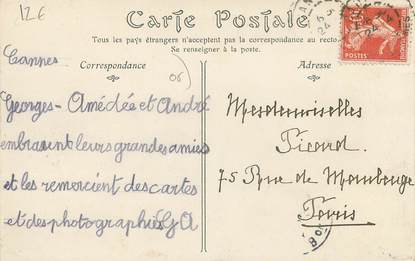 12€
Carte Postale
Tous les pays étrangers n'acceptent pas la correspondance au recto
Se renseigner à la poste.
Correspondance
Adresse
Cannes
(06)
Georges - Amédée et André
embrassent leurs grandes amies
et les remercient des cartes
et des photographies G A
Mesdemoiselles
Picard.
75 Rue de Maubeuge
Paris